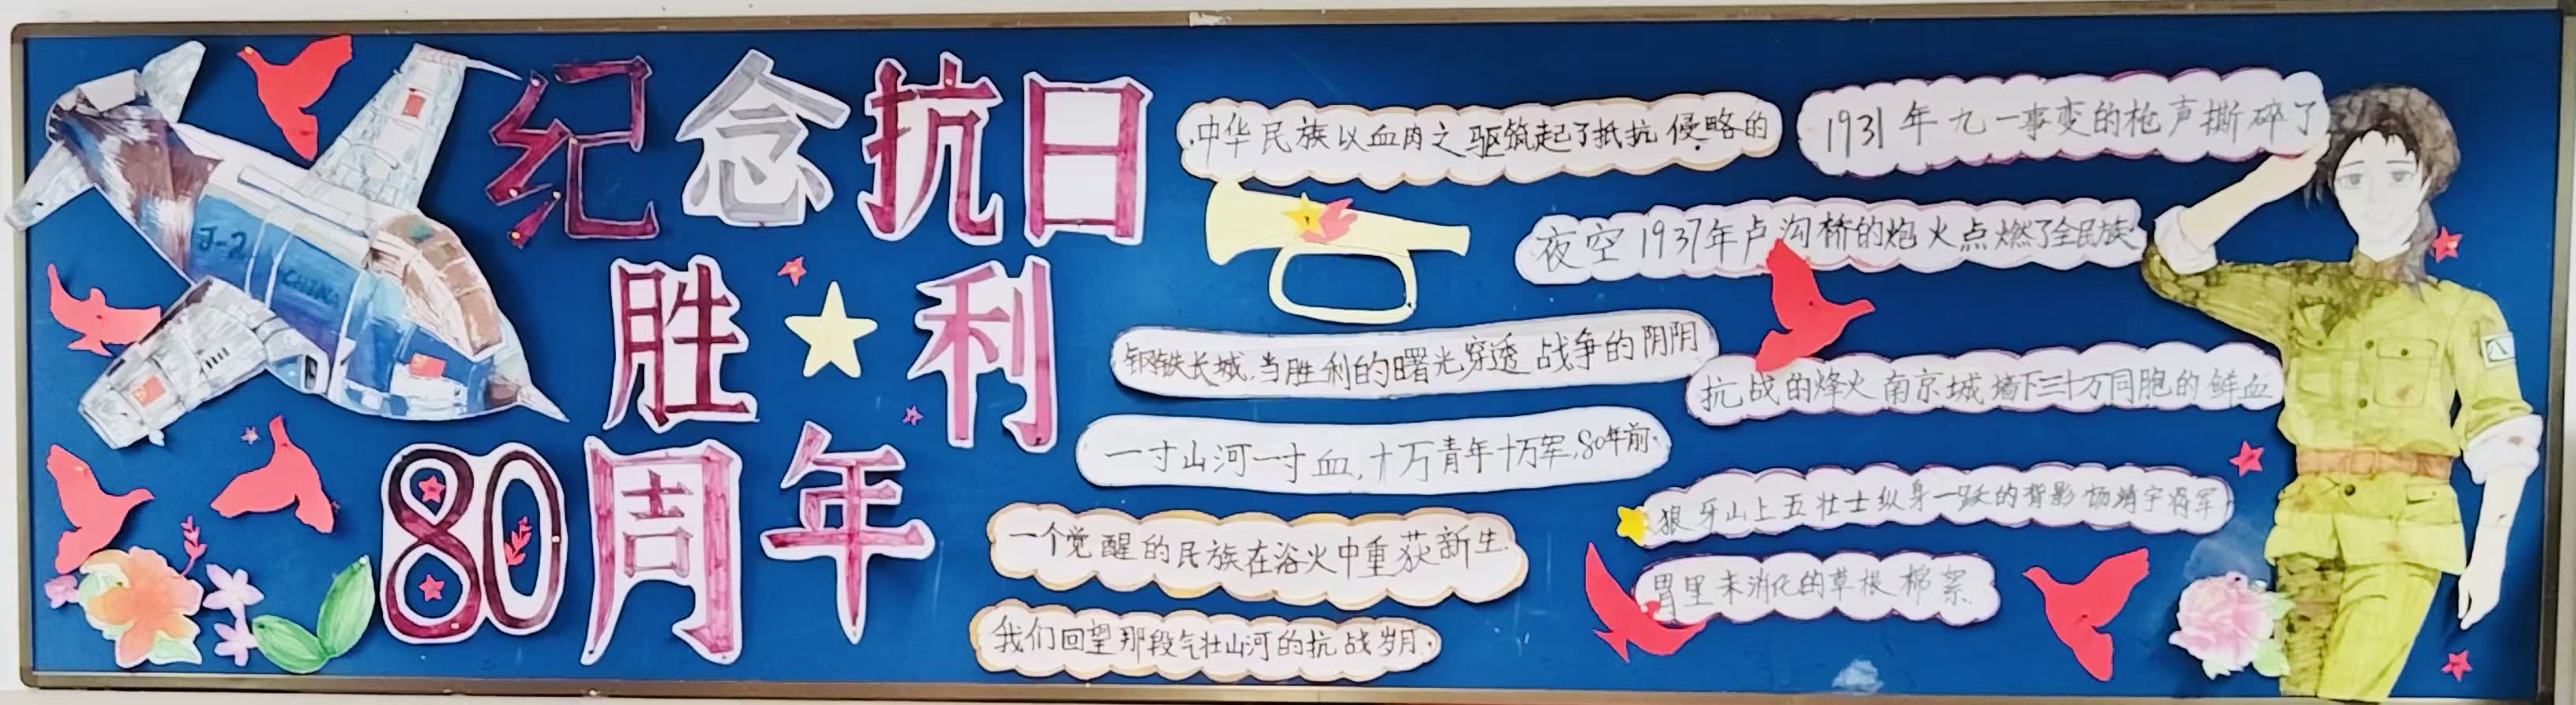 纪念抗日
胜利
80周年
J-2
CHINA
中华民族以血肉之驱筑起了抵抗侵略的
钢铁长城.当胜利的曙光穿透战争的阴阴
一寸山河一寸血,十万青年十万军,80年前.
一个觉醒的民族在浴火中重获新生.
我们回望那段气壮山河的抗战岁月.
1931年九一事变的枪声撕碎了
夜空1937年卢沟桥的炮火点燃了全民族
抗战的烽火南京城墙下三十万同胞的鲜血
狼牙山上五壮士纵身一跃的背影杨靖宇将军
胃里未消化的草根棉絮.
八